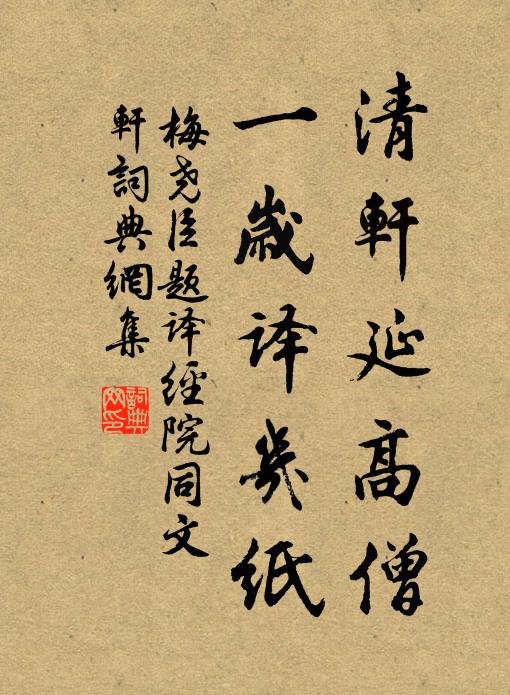 清軒延高僧
一歲译幾纸
梅尧臣题译經院同文
軒詞典網集
詞典網印